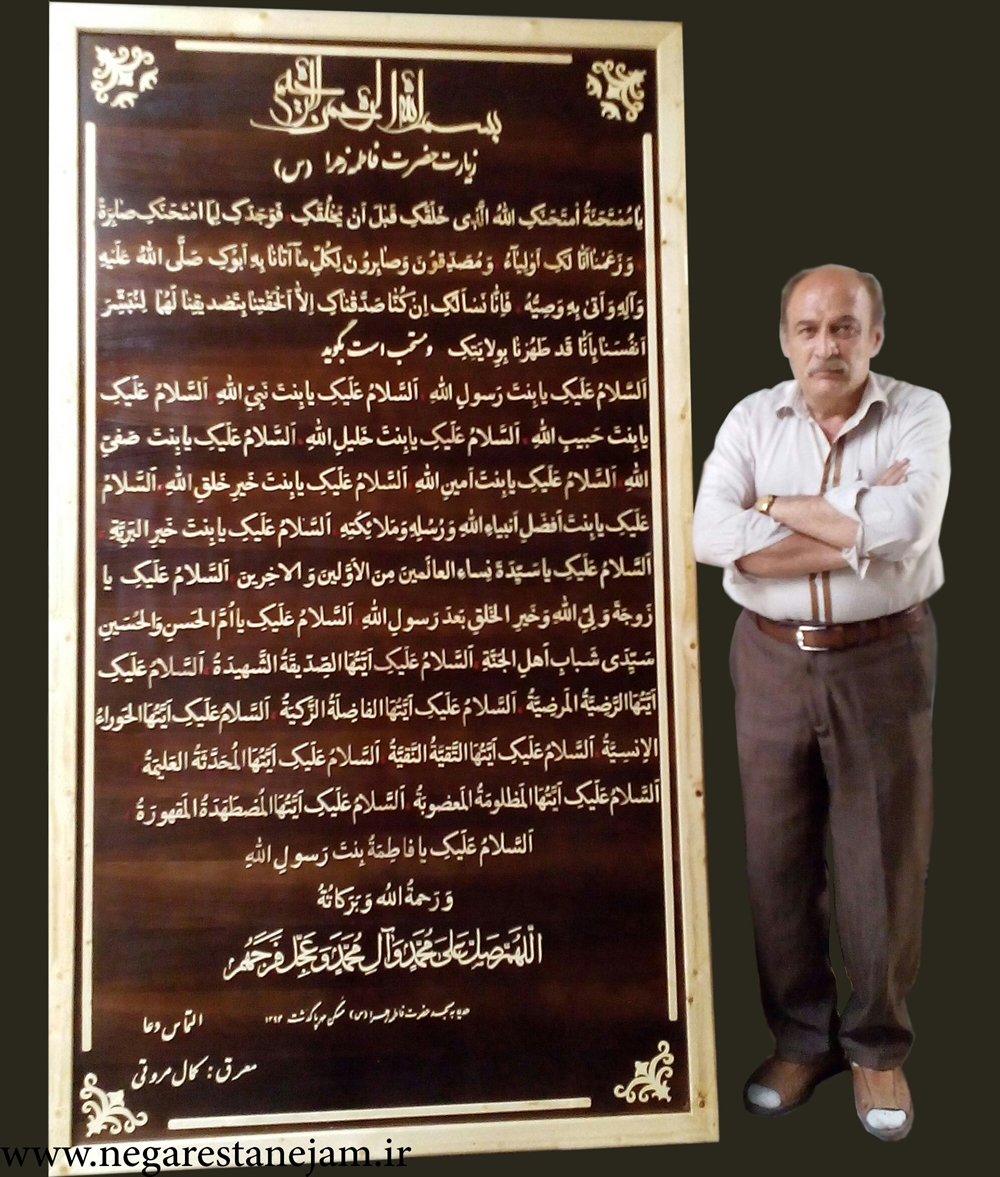 بسم الله الرحمن الرحیم
زیارت حضرت فاطمه زهرا (س)
یا مُمتَحَنَةُ اِمتَحَنَکِ اللهُ الَّذی خَلَقَکِ قَبلَ اَن یَخلُقَکِ فَوَجَدَکِ لِمَا امتَحَنَکِ صابِرَةً
وَ زَعَمنا اَنّا لَکِ اَولِیآءُ وَ مُصَدِّقونَ وَ صابِرونَ لِکُلِّ مآ اَتانا بِهِ اَبوکِ صَلَّی اللهُ عَلَیهِ
وَآلِهِ وَ اَتیٰ بِهِ وَصِیُّهُ فَاِنّا نَسألُکِ اِن کُنّا صَدَّقناکِ اِلاّ اَلحَقتِنا بِتَصدیقِنا لَهُما لِنُبَشِّرَ
اَنفُسَنا بِاَنّا قَد طَهُرنا بِوِلایَتِکِ و مستحب است بگوید
اَلسَّلامُ عَلَیکِ یا بِنتَ رَسولِ اللهِ اَلسَّلامُ عَلَیکِ یا بِنتَ نَبِیِّ اللهِ اَلسَّلامُ عَلَیکِ
یا بِنتَ حَبیبِ اللهِ اَلسَّلامُ عَلَیکِ یا بِنتَ خَلیلِ اللهِ اَلسَّلامُ عَلَیکِ یا بِنتَ صَفِیِّ
اللهِ اَلسَّلامُ عَلَیکِ یا بِنتَ اَمینِ اللهِ اَلسَّلامُ عَلَیکِ یا بِنتَ خَیرِ خَلقِ اللهِ اَلسَّلامُ
عَلَیکِ یا بِنتَ اَفضَلِ اَنبیاءِ اللهِ وَ رُسُلِهِ وَ مَلائِکَتِهِ اَلسَّلامُ عَلَیکِ یا بِنتَ خَیرِ البَرِیَّةِ
اَلسَّلامُ عَلَیکِ یا سَیِّدَةَ نِساءِ العالَمینَ مِنَ الاَوَّلینَ وَ الاخِرینَ اَلسَّلامُ عَلَیکِ یا
زَوجَةَ وَلِیِّ اللهِ وَ خَیرِ الخَلقِ بَعدَ رَسولِ اللهِ اَلسَّلامُ عَلَیکِ یا اُمَّ الحَسَنِ وَالحُسَینِ
سَیِّدَی شَبابِ اَهلِ الجَنَّةِ اَلسَّلامُ عَلَیکِ اَیَّتُهَا الصِّدّیقَةُ الشَّهیدَةُ اَلسَّلامُ عَلَیکِ
اَیَّتُهَا الرَّضِیَّةُ المَرضِیَّةُ اَلسَّلامُ عَلَیکِ اَیَّتُهَا الفاضِلَةُ الزَّکِیَّةُ اَلسَّلامُ عَلَیکِ اَیَّتُهَا الحَوراءُ
الاِنسِیَّةُ اَلسَّلامُ عَلَیکِ اَیَّتُهَا التَّقِیَّةُ النَّقِیَّةُ اَلسَّلامُ عَلَیکِ اَیَّتُهَا المُحَدَّثَةُ العَلیمَةُ
اَلسَّلامُ عَلَیکِ اَیَّتُهَا المَظلومَةُ المَغصوبَةُ اَلسَّلامُ عَلَیکِ اَیَّتُهَا المُضطَهَدَةُ المَقهورَةُ
اَلسَّلامُ عَلَیکِ یا فاطِمَةُ بِنتَ رَسولِ اللهِ
وَ رَحمَةُ اللهِ وَ بَرَکاتُهُ
اللّهُمَّ صَلِّ عَلیٰ مُحَمَّدٍ وَ آلِ مُحَمَّدٍ وَ عَجِّل فَرَجَهُم
هدیه به مسجد حضرت فاطمه زهرا (س)
التماس دعا
معرق : کمال مروتی
www.negarestanejam.ir